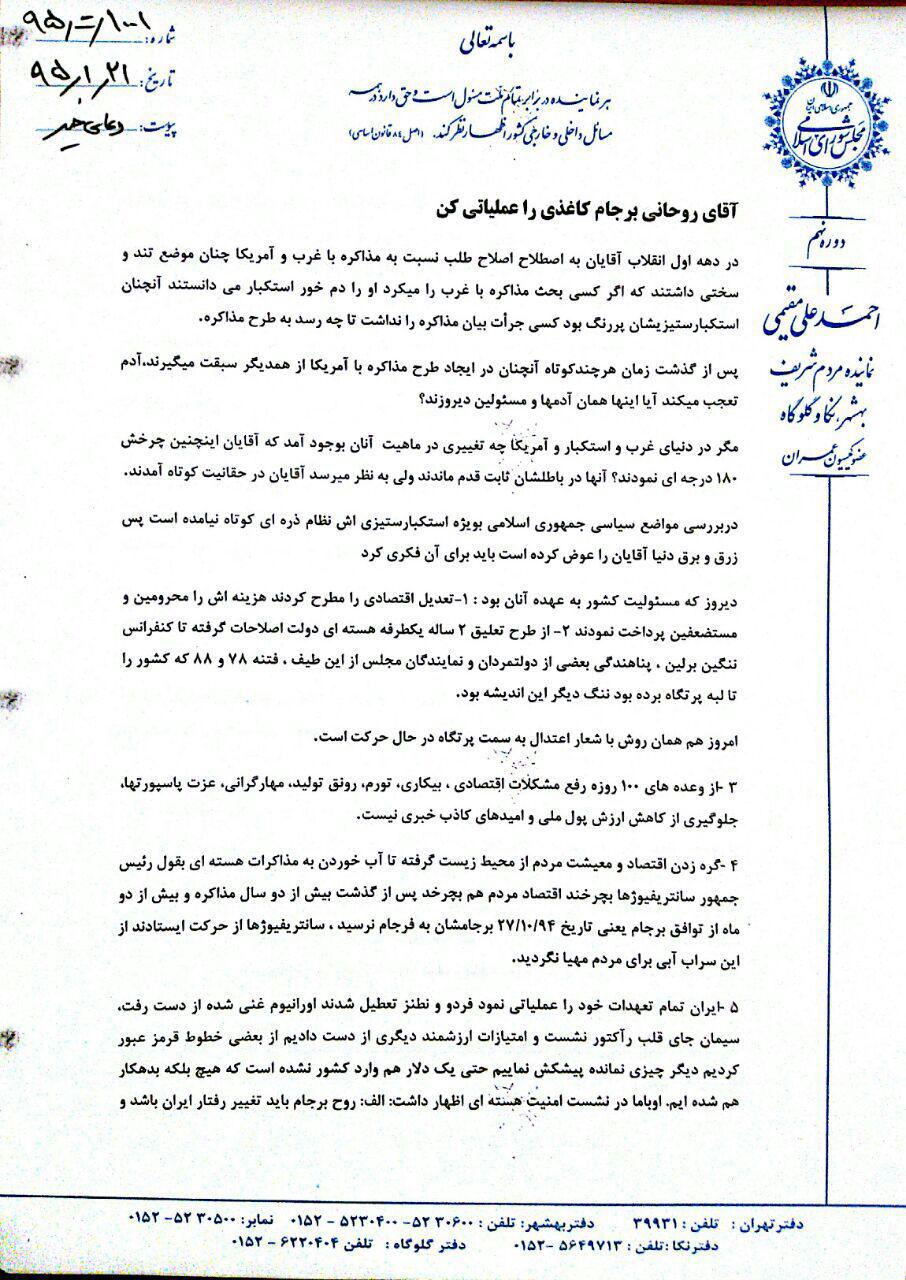 باسمه تعالی
هر نماینده در برابر تمام ملت مسئول است و حق دارد در همه
مسائل داخلی و خارجی کشور اظهار نظر کند. (اصل ۸۴ قانون اساسی)
شماره: ۱۰۰۱/ت/۹۵
تاریخ: ۹۵/۱/۲۱
پیوست: دعای خیر
جمهوری اسلامی ایران
مجلس شورای اسلامی
دوره نهم
احمدعلی مقیمی
نماینده مردم شریف
بهشهر، نکا و گلوگاه
عضو کمیسیون عمران
آقای روحانی برجام کاغذی را عملیاتی کن
در دهه اول انقلاب آقایان به اصطلاح اصلاح طلب نسبت به مذاکره با غرب و آمریکا چنان موضع تند و
سختی داشتند که اگر کسی بحث مذاکره با غرب را میکرد او را دم خور استکبار می دانستند آنچنان
استکبارستیزیشان پررنگ بود کسی جرأت بیان مذاکره را نداشت تا چه رسد به طرح مذاکره.
پس از گذشت زمان هرچندکوتاه آنچنان در ایجاد طرح مذاکره با آمریکا از همدیگر سبقت میگیرند،آدم
تعجب میکند آیا اینها همان آدمها و مسئولین دیروزند؟
مگر در دنیای غرب و استکبار و آمریکا چه تغییری در ماهیت آنان بوجود آمد که آقایان اینچنین چرخش
۱۸۰ درجه ای نمودند؟ آنها در باطلشان ثابت قدم ماندند ولی به نظر میرسد آقایان در حقانیت کوتاه آمدند.
دربررسی مواضع سیاسی جمهوری اسلامی بویژه استکبارستیزی اش نظام ذره ای کوتاه نیامده است پس
زرق و برق دنیا آقایان را عوض کرده است باید برای آن فکری کرد
دیروز که مسئولیت کشور به عهده آنان بود : ۱-تعدیل اقتصادی را مطرح کردند هزینه اش را محرومین و
مستضعفین پرداخت نمودند ۲- از طرح تعلیق ۲ ساله یکطرفه هسته ای دولت اصلاحات گرفته تا کنفرانس
ننگین برلین ، پناهندگی بعضی از دولتمردان و نمایندگان مجلس از این طیف ، فتنه ۷۸ و ۸۸ که کشور را
تا لبه پرتگاه برده بود ننگ دیگر این اندیشه بود.
امروز هم همان روش با شعار اعتدال به سمت پرتگاه در حال حرکت است.
۳ -از وعده های ۱۰۰ روزه رفع مشکلات اقتصادی ، بیکاری، تورم، رونق تولید، مهارگرانی، عزت پاسپورتها،
جلوگیری از کاهش ارزش پول ملی و امیدهای کاذب خبری نیست.
۴ -گره زدن اقتصاد و معیشت مردم از محیط زیست گرفته تا آب خوردن به مذاکرات هسته ای بقول رئیس
جمهور سانتریفیوژها بچرخند اقتصاد مردم هم بچرخد پس از گذشت بیش از دو سال مذاکره و بیش از دو
ماه از توافق برجام یعنی تاریخ ۲۷/۱۰/۹۴ برجامشان به فرجام نرسید ، سانتریفیوژها از حرکت ایستادند از
این سراب آبی برای مردم مهیا نگردید.
۵ -ایران تمام تعهدات خود را عملیاتی نمود فردو و نطنز تعطیل شدند اورانیوم غنی شده از دست رفت،
سیمان جای قلب رآکتور نشست و امتیازات ارزشمند دیگری از دست دادیم از بعضی خطوط قرمز عبور
کردیم دیگر چیزی نمانده پیشکش نماییم حتی یک دلار هم وارد کشور نشده است که هیچ بلکه بدهکار
هم شده ایم. اوباما در نشست امنیت هسته ای اظهار داشت: الف: روح برجام باید تغییر رفتار ایران باشد و
دفترتهران : تلفن : ۳۹۹۳۱ دفتربهشهر: تلفن : ۵۲۳۰۶۰۰ - ۵۲۳۰۴۰۰ - ۰۱۵۲ نمابر: ۵۲۳۰۵۰۰ - ۰۱۵۲
دفترنکا :تلفن : ۵۶۴۹۷۱۳ -۰۱۵۲ دفتر گلوگاه : تلفن ۶۲۲۰۴۰۴ - ۰۱۵۲